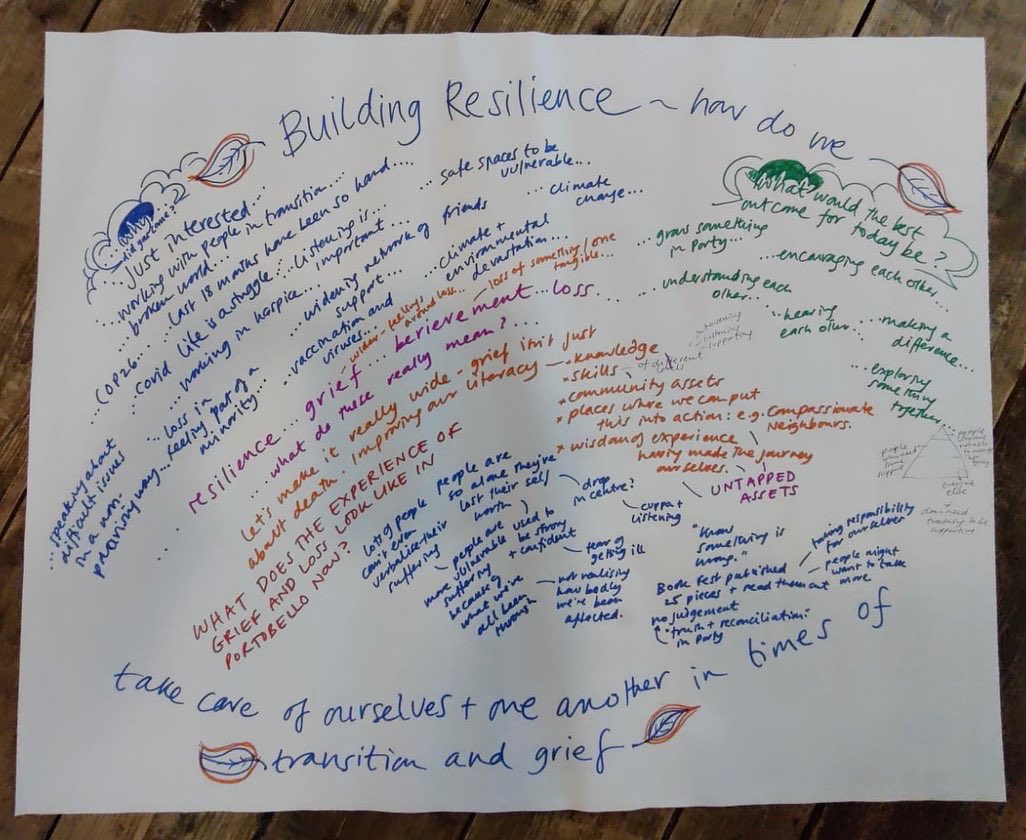 Building Resilience ~ how do we
why
did you come?
Just interested...
...working with people in transition...
broken world...
...last 18 months have been so hard....
COP26...
...covid
Life is a struggle...
...Listening is...
important...
...working in hospice...
...safe spaces to be
vulnerable...
...widening network of friends
support...
...climate
change...
...climate +
environmental
devastation...
...vaccination and
viruses...
...loss in
...feeling part of a
minority...
...speaking about
difficult issues
in a non-
way...
What would the best
outcome for today be?
...grow something
in Porty...
...encouraging each other...
...understanding each
other...
...hearing
each other...
...making a
difference...
...exploring
something
together...
- wider feeling!
around loss...
- loss of something/one
tangible...
. resilience... grief... berievement... loss...
...what do these really mean?...
let's make it really wide - grief isn't just
about death. improving our literacy
* knowledge
* skills
of different
listening
supporting
* community assets
* places where we can put
this into action: e.g. Compassionate
Neighbours.
* wisdom of experience
having made the journey
ourselves.
UNTAPPED
ASSETS
WHAT DOES THE EXPERIENCE OF
GRIEF AND LOSS LOOK LIKE IN
PORTOBELLO NOW?
Lots of people
can't even
verbalise their
suffering
people are
so alone they're
lost their self
worth
- drop
in centre?
cuppa +
listening
people are used to
be strong
+ confident
more vulnerable
suffering
because of
what we've
all been
through
- fear of
getting ill
- not realising
how badly
we've been
affected.
"Know
something is
wrong."
Book Fest published
25 pieces + read them out
taking responsibility
for ourselves
people might
want to take
more
no judgement
"trush + reconciliation"
in Porty
people
people
who need
some
support
everyone
else
+ down need
training to be
supporting
take care of ourselves + one another in times of
transition and grief